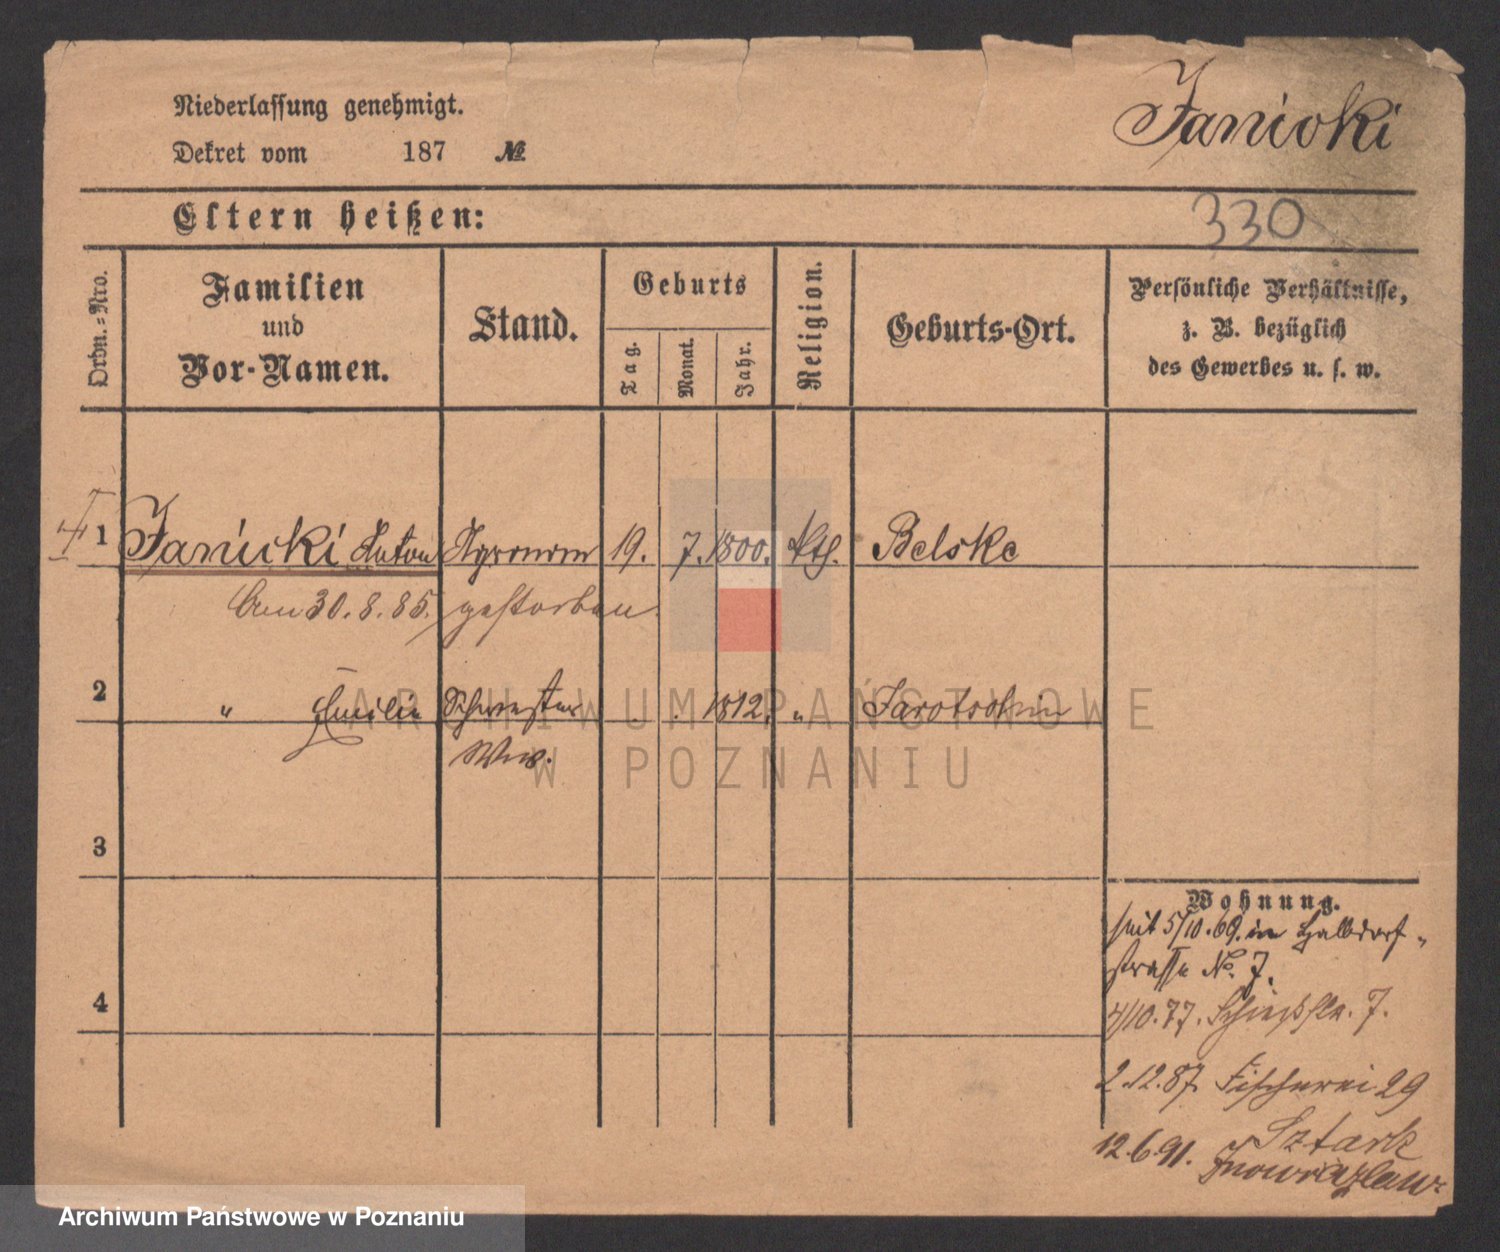 Niederlassung genehmigt.
Janicki
Dekret vom 187 №
Eltern heißen:
330
Ordn.-Nro.
Familien
und
Vor-Namen.
Stand.
Geburts
Tag.
Monat.
Jahr.
Religion.
Geburts-Ort.
Persönliche Verhältnisse,
z. B. bezüglich
des Gewerbes u. s. w.
1 Janicki Anton Agronom 19. 7. 1800. kth. Belske
Am 30. 8. 85. gestorben
2 " Emilie Schwester 1812. " Jarotschin
Wwe.
3
Wohnung.
seit 5/10. 69. in Halbdorf-
strasse No. 7.
4
4/10. 77. Schießstr. 7.
2.12.87 Fischerei 29
Sztark
12.6.91. Inowrazlaw
ARCHIWUM PAŃSTWOWE
W POZNANIU
Archiwum Państwowe w Poznaniu